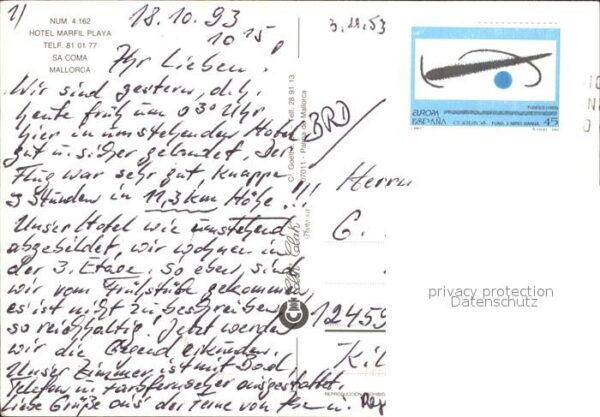 1/
NUM. 4.162
HOTEL MARFIL PLAYA
TELF. 81 01 77
SA COMA
MALLORCA
18.10.93
10 15
Ihr Lieben!
Wir sind gestern, d.h.
heute früh um 0 30 Uhr
hier in umstehenden Hotel
gut u. sicher gelandet. Der
Flug war sehr gut, knappe
3 Stunden in 11,3 km Höhe!!!
Unser Hotel wie umstehend
abgebildet, wir wohnen in
der 3. Etage. So eben, sind
wir vom Frühstück gekommen
es ist nicht zu beschreiben
so reichhaltig. Jetzt werden
wir die Gegend erkunden.
Unser Zimmer ist mit Bad,
Telefon u. Farbfernseher ausgestattet.
Liebe Grüße aus der Ferne von
C/ Goethe Telf. 28 91 13
07011 - Palma de Mallorca
EUROPA
ESPAÑA
45
BRD
Herrn
G.
12459
privacy protection
Datenschutz